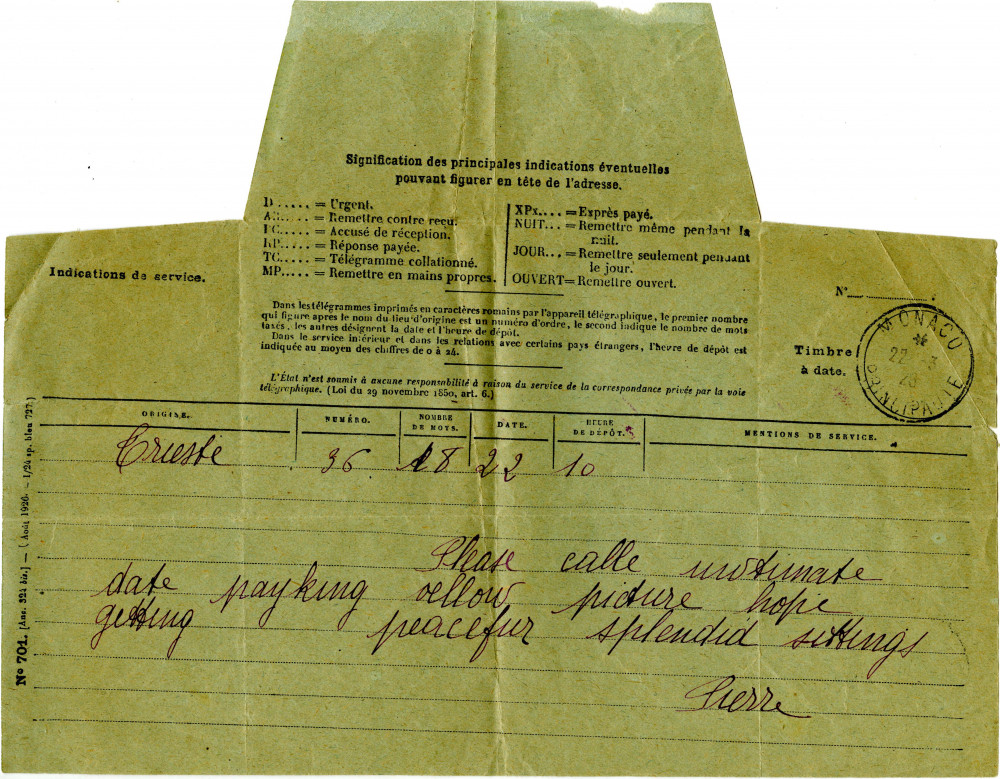 Signification des principales indications éventuelles
pouvant figurer en tête de l'adresse.
D..... = Urgent.
AR.... = Remettre contre reçu.
PC.... = Accusé de réception.
RP.... = Réponse payée.
TC.... = Télégramme collationné.
MP..... = Remettre en mains propres.
XPx.... = Exprès payé.
NUIT... = Remettre même pendant la
nuit.
JOUR... = Remettre seulement pendant
le jour.
OUVERT = Remettre ouvert.
Indications de service.
Dans les télégrammes imprimés en caractères romains par l'appareil télégraphique, le premier nombre
qui figure après le nom du lieu d'origine est un numéro d'ordre, le second indique le nombre de mots
taxés, les autres désignent la date et l'heure de dépôt.
Dans le service intérieur et dans les relations avec certains pays étrangers, l'heure de dépôt est
indiquée au moyen des chiffres de 0 à 24.
L'État n'est soumis à aucune responsabilité à raison du service de la correspondance privée par la voie
télégraphique. (Loi du 29 novembre 1850, art. 6.)
N°
Timbre
à date.
MONACO
22 3
28
PRINCIPAUTE
ORIGINE. NUMÉRO. NOMBRE DE MOTS. DATE. HEURE DE DÉPÔT. MENTIONS DE SERVICE.
Trieste 36 18 22 10
Please calle uvotimate
date payking vellow picture hope
getting peacefur splendid sittings
Pierre
N° 701. [Anc. 324 bis.] — (Août 1926. — 1/24 sp. bleu 727.)